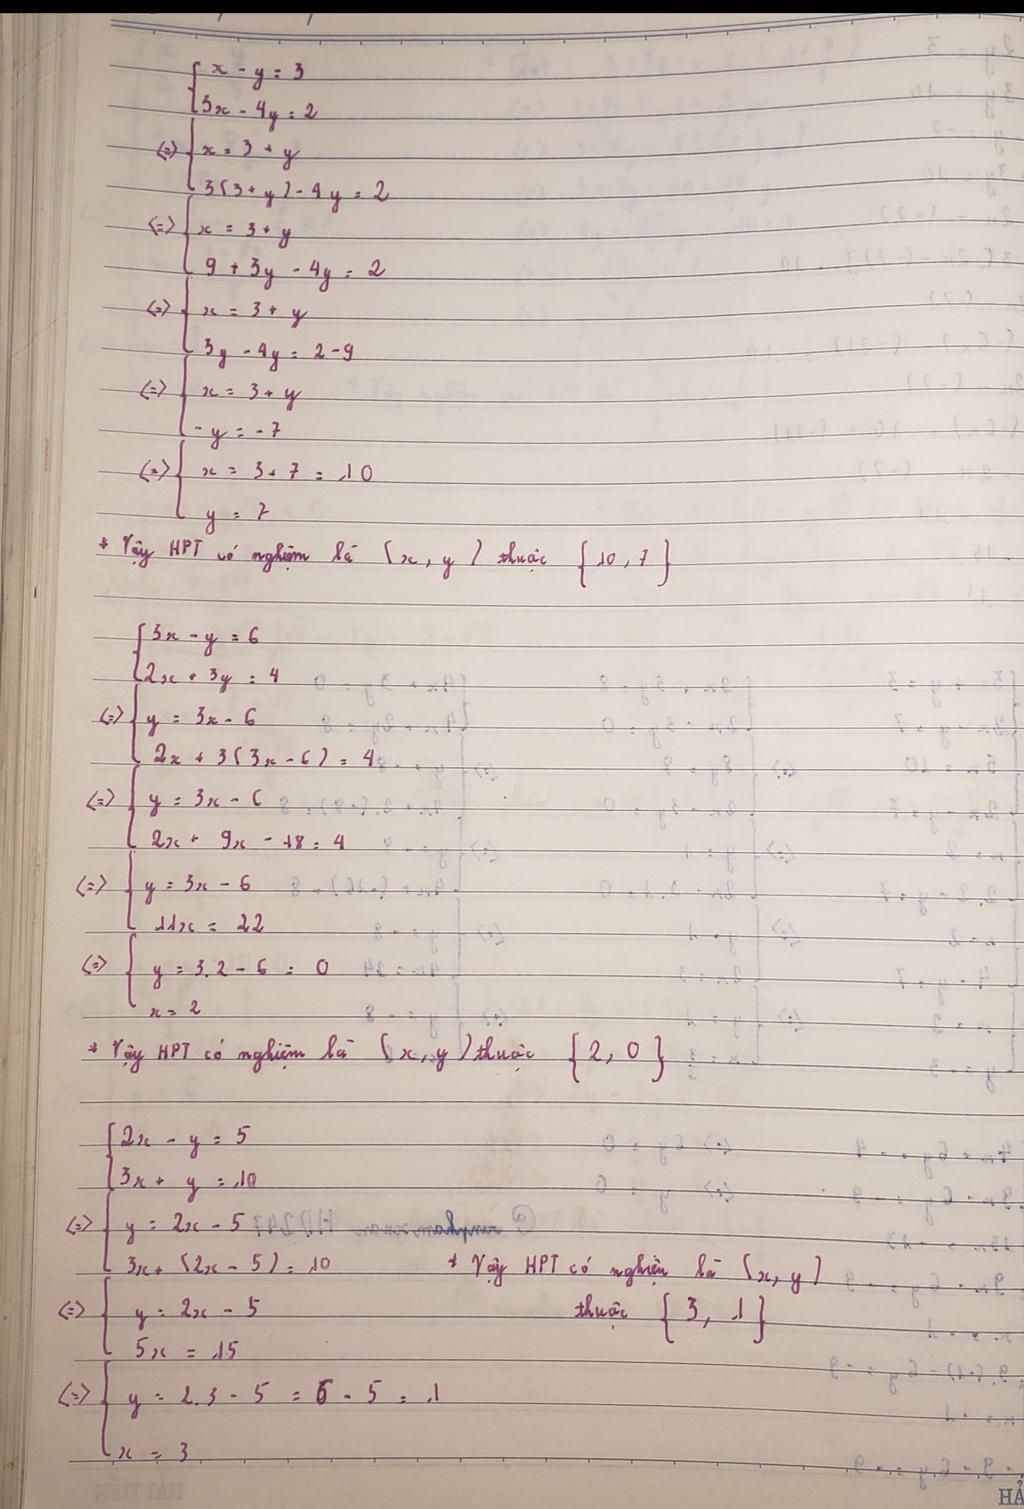 { x - y = 3
3x - 4y = 2
<=> { x = 3 + y
3(3 + y) - 4y = 2
<=> { x = 3 + y
9 + 3y - 4y = 2
<=> { x = 3 + y
3y - 4y = 2 - 9
<=> { x = 3 + y
-y = -7
<=> { x = 3 + 7 = 10
y = 7
* Vậy HPT có nghiệm là (x, y) thuộc {10, 7}
{ 3x - y = 6
2x + 3y = 4
<=> { y = 3x - 6
2x + 3(3x - 6) = 4
<=> { y = 3x - 6
2x + 9x - 18 = 4
<=> { y = 3x - 6
11x = 22
<=> { y = 3.2 - 6 = 0
x = 2
* Vậy HPT có nghiệm là (x, y) thuộc {2, 0}
{ 2x - y = 5
3x + y = 10
<=> { y = 2x - 5
3x + (2x - 5) = 10
<=> { y = 2x - 5
5x = 15
<=> { y = 2.3 - 5 = 6 - 5 = 1
x = 3
* Vậy HPT có nghiệm là (x, y)
thuộc {3, 1}